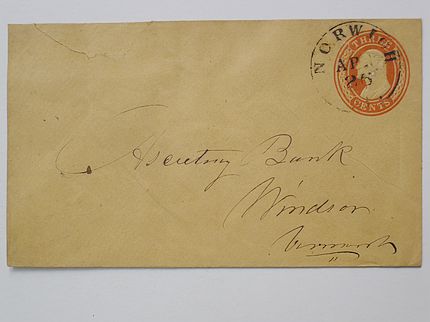 NORWICH
AP
26
THREE
CENTS
Ascutney Bank
Windsor
Vermont